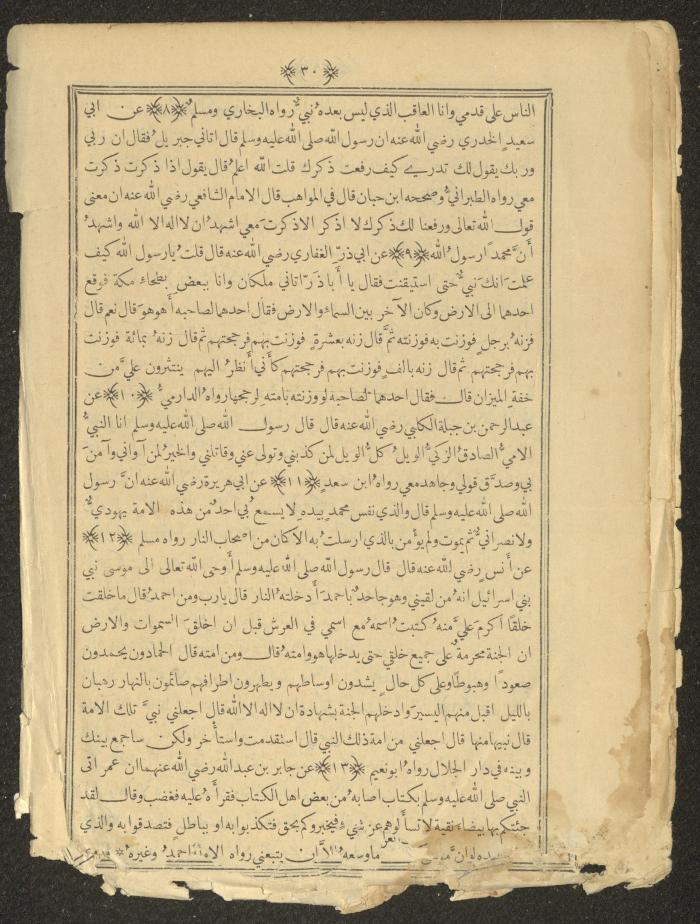 ﴿٣٠﴾
الناس على قدمي وانا العاقب الذي ليس بعده نبيٌّ رواه البخاري ومسلم ﴿٨﴾ عن ابي
سعيد الخدري رضي الله عنه ان رسول الله صلى الله عليه وسلم قال اتاني جبريل فقال ان ربي
وربك يقول لك تدري كيف رفعت ذكرك قلت الله اعلم قال يقول اذا ذكرت ذكرت
معي رواه الطبراني وصححه ابن حبان قال في المواهب قال الامام الشافعي رضي الله عنه ان معنى
قول الله تعالى ورفعنا لك ذكرك لا اذكر الا ذكرت معي اشهد ان لا اله الا الله واشهد
أنَّ محمدًا رسول الله ﴿٩﴾ عن ابي ذرّ الغفاري رضي الله عنه قال قلت يا رسول الله كيف
علمت انك نبيٌّ حتى استيقنت فقال يا أبا ذرّ اتاني ملكان وانا ببعض بطحاء مكة فوقع
احدهما الى الارض وكان الآخر بين السماء والارض فقال احدهما لصاحبه أهو هو قال نعم قال
فزنه برجلٍ فوزنت به فوزنته ثمَّ قال زنه بعشرةٍ فوزنت بهم فرجحتهم ثم قال زنه بمائة فوزنت
بهم فرجحتهم ثم قال زنه بالف فوزنت بهم فرجحتهم كأني أنظر اليهم ينتثرون عليَّ من
خفة الميزان قال فقال احدهما لصاحبه لو وزنته بامته لرجحها رواه الدارمي ﴿١٠﴾ عن
عبد الرحمن بن جبلة الكلبي رضي الله عنه قال قال رسول الله صلى الله عليه وسلم انا النبيُّ
الاميُّ الصادق الزكيُّ الويل كلُّ الويل لمن كذبني وتولى عني وقاتلني والخير لمن آواني وآمن
بي وصدَّق قولي وجاهد معي رواه ابن سعدٍ ﴿١١﴾ عن ابي هريرة رضي الله عنه انَّ رسول
الله صلى الله عليه وسلم قال والذي نفس محمدٍ بيده لا يسمع بي احدٌ من هذه الامة يهوديٌّ
ولا نصرانيٌّ ثم يموت ولم يؤمن بالذي ارسلت به الا كان من اصحاب النار رواه مسلم ﴿١٢﴾
عن أنسٍ رضي الله عنه قال قال رسول الله صلى الله عليه وسلم أوحى الله تعالى الى موسى نبي
بني اسرائيل انه من لقيني وهو جاحدٌ باحمد أدخلته النار قال يا رب ومن احمد قال ما خلقت
خلقًا أكرم عليَّ منه كتبت اسمه مع اسمي في العرش قبل ان اخلق السموات والارض
ان الجنة محرمةٌ على جميع خلقي حتى يدخلها هو وامته قال ومن امته قال الحمادون يحمدون
صعودًا وهبوطًا وعلى كل حالٍ يشدون اوساطهم ويطهرون اطرافهم صائمون بالنهار رهبان
بالليل اقبل منهم اليسير وادخلهم الجنة بشهادة ان لا اله الا الله قال اجعلني نبيَّ تلك الامة
قال نبيها منها قال اجعلني من امة ذلك النبي قال استقدمت واستأخر ولكن ساجمع بينك
وبينه في دار الجلال رواه ابو نعيم ﴿١٣﴾ عن جابر بن عبد الله رضي الله عنهما ان عمر اتى
النبي صلى الله عليه وسلم بكتاب اصابه من بعض اهل الكتاب فقرأه عليه فغضب وقال لقد
جئتكم بها بيضاء نقية لا تسألوهم عن شيءٍ فيخبروكم بحق فتكذبوا به او بباطلٍ فتصدقوا به والذي
بيده لو انَّ ما وسعه الّا ان يتبعني رواه الامام احمد وغيره